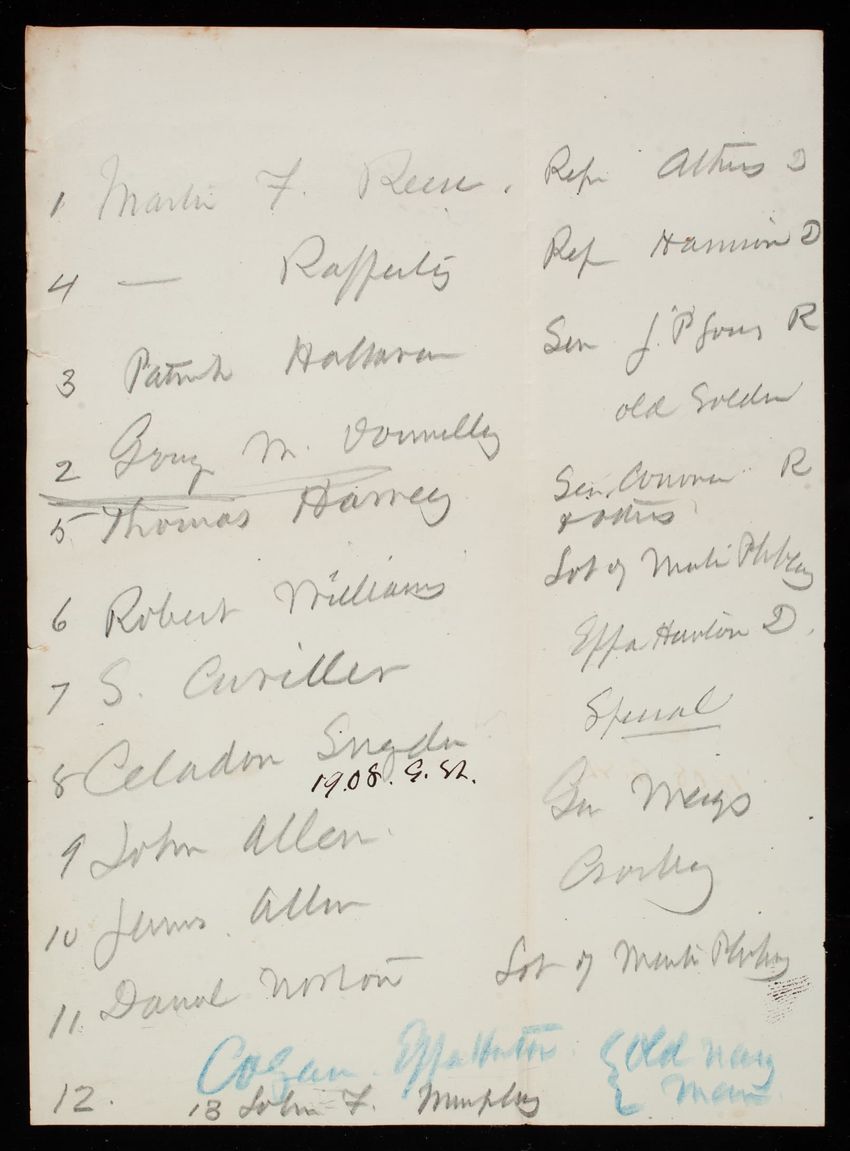 1 Martin F. Reese. Rep Athers D
4 — Rafferty Rep Harrison D
3 Patrick Halloran Sen J. P Jones R
2 George M. Donnelly old Soldier
5 Thomas Harvey Sen. Conover R
& others
6 Robert Williams Lot of
7 S. Cuviller Eppa Hunton D.
8 Celadon Snyder Special
1908. G. St.
9 John Allen. Gen Meigs
10 James Allen Crosby
11 Daniel Norton Lot of
12. Cogan. Eppa Hutton. { Old navy
{ Man
13 John F. Murphy